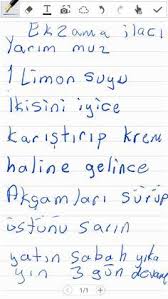 Ekzama ilacı
Yarım muz
1 Limon suyu
Ikisini iyice
karıştırıp krem
haline gelince
Akşamları sürüp
üstünü sarın
yatın sabah yıka
yın 3 gün devam
1/1